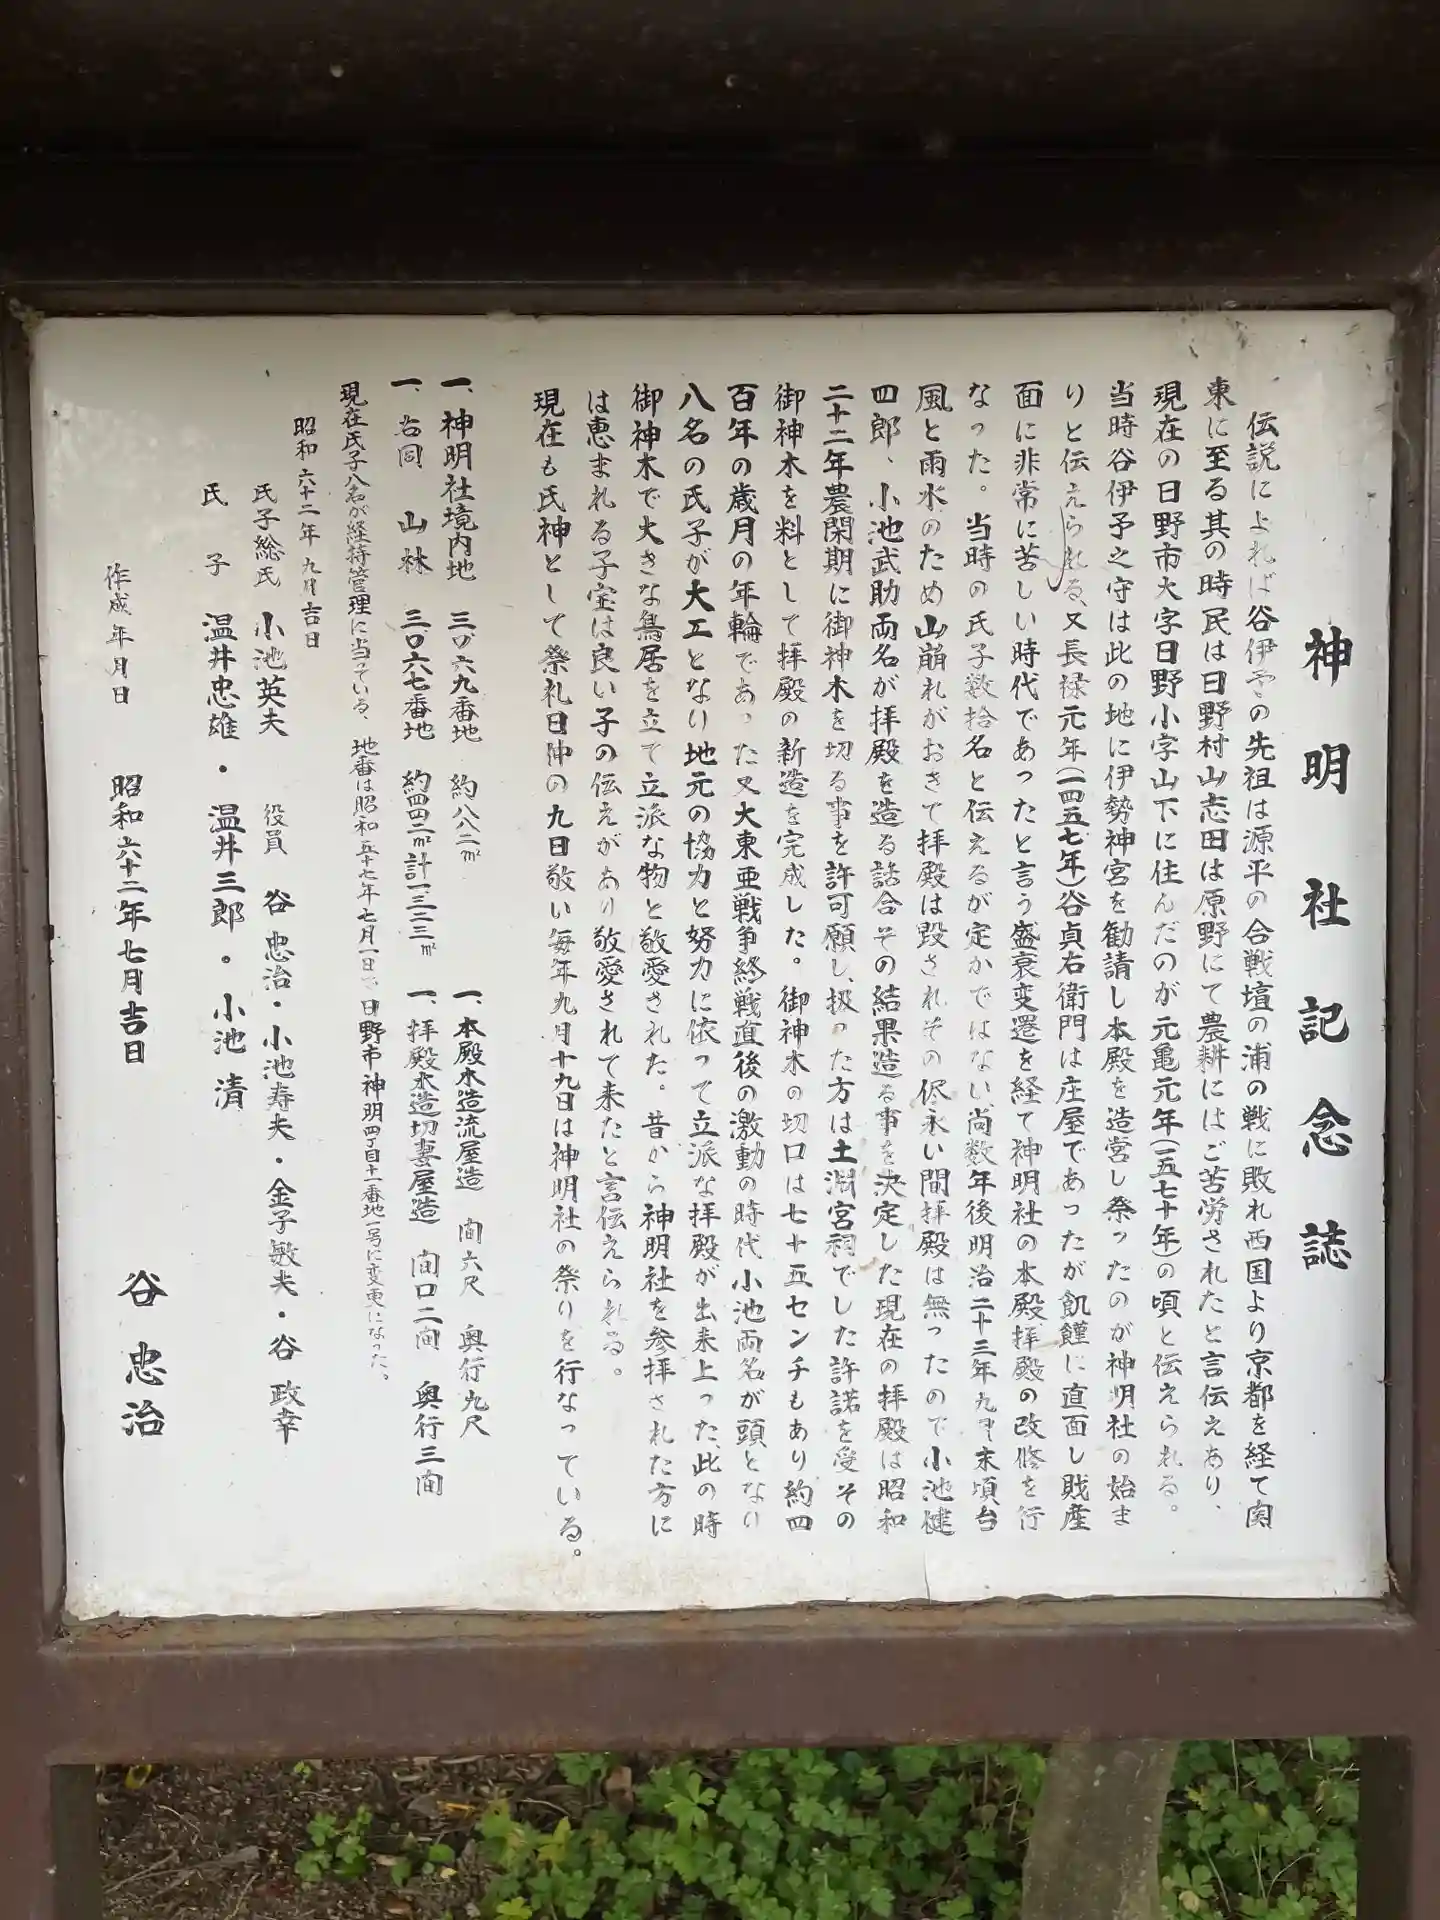 神明社記念誌
伝説によれば谷伊予の先祖は源平の合戦壇の浦の戦に敗れ西国より京都を経て関
東に至る其の時民は日野村山志田は原野にて農耕にはご苦労されたと言伝えあり、
現在の日野市大字日野小字山下に住んだのが元亀元年(一五七十年)の頃と伝えられる。
当時谷伊予之守は此の地に伊勢神宮を勧請し本殿を造営し祭ったのが神明社の始ま
りと伝えられる、又長禄元年(一四五七年)谷貞右衛門は庄屋であったが飢饉に直面し財産
面に非常に苦しい時代であったと言う盛衰変遷を経て神明社の本殿拝殿の改修を行
なった。当時の氏子数拾名と伝えるが定かではない、尚数年後明治二十三年九月末頃台
風と雨水のため山崩れがおきて拝殿は毀されその侭永い間拝殿は無ったので小池健
四郎、小池武助両名が拝殿を造る話合その結果造る事を決定した現在の拝殿は昭和
二十二年農閑期に御神木を切る事を許可願し、扱った方は土渕宮祠でした許諾を受その
御神木を料として拝殿の新造を完成した。御神木の切口は七十五センチもあり約四
百年の歳月の年輪であった又大東亜戦争終戦直後の激動の時代小池両名が頭となり
八名の氏子が大工となり地元の協力と努力に依って立派な拝殿が出来上った、此の時
御神木で大きな鳥居を立て立派な物と敬愛された。昔から神明社を参拝された方に
は恵まれる子宝は良い子の伝えがあり敬愛されて来たと言伝えられる。
現在も氏神として祭礼日仲の九日敬い毎年九月十九日は神明社の祭りを行なっている。
一、神明社境内地 三〇六九番地 約八八二㎡ 一、本殿木造流屋造 間六尺 奥行九尺
一、右同 山林 三〇六七番地 約四四二㎡計一三二三㎡ 一、拝殿木造切妻屋造 間口二間 奥行三間
現在氏子八名が経持管理に当っている、地番は昭和五十七年七月一日で日野市神明四丁目十一番地一号に変更になった。
昭和六十二年九月吉日
氏子総氏 小池英夫 役員 谷忠治・小池寿夫・金子敏夫・谷政幸
氏子 温井忠雄・温井三郎。小池清
作成年月日 昭和六十二年七月吉日 谷忠治